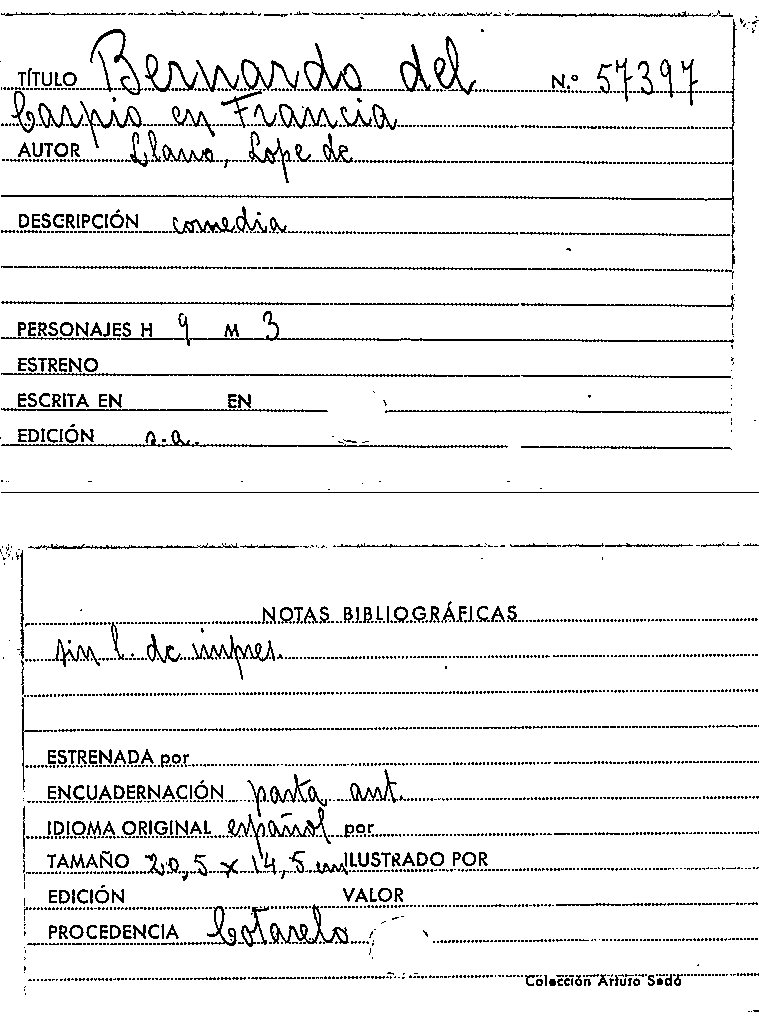 TÍTULO Bernardo del N.º 57397
Carpio en Francia
AUTOR Llano, Lope de
DESCRIPCIÓN comedia
PERSONAJES H 9 M 3
ESTRENO
ESCRITA EN EN
EDICIÓN s.a.
NOTAS BIBLIOGRÁFICAS
sin l. de impres.
ESTRENADA por
ENCUADERNACIÓN pasta ant.
IDIOMA ORIGINAL español por
TAMAÑO 20,5 x 14,5 cm ILUSTRADO POR
EDICIÓN VALOR
PROCEDENCIA Cotarelo
Colección Arturo Sedó